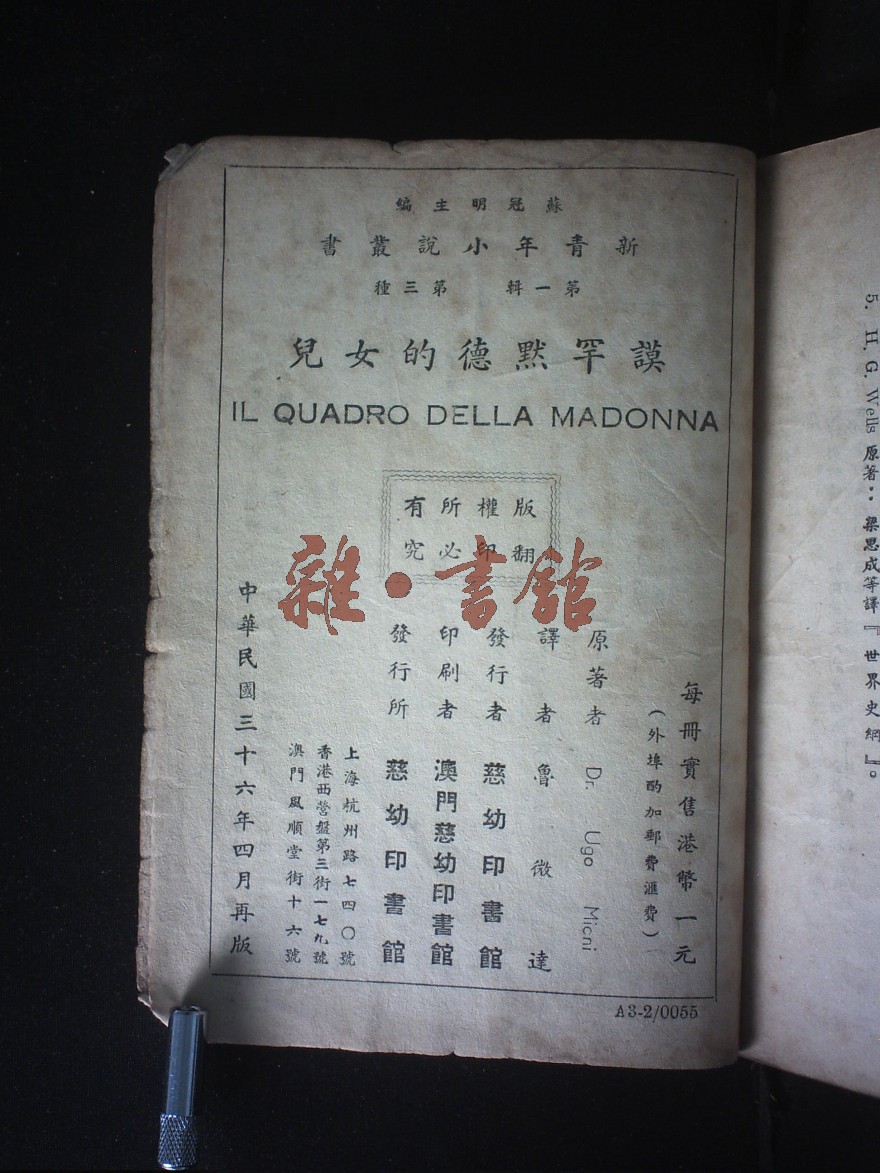 蘇冠明主編
新青年小說叢書
第一輯 第三種
謨罕默德的女兒
IL QUADRO DELLA MADONNA
版權所有
翻印必究
每冊實售港幣一元
(外埠酌加郵費滙費)
原著者 Dr. Ugo Micni
譯者 魯微達
發行者 慈幼印書館
印刷者 澳門慈幼印書館
發行所 慈幼印書館
上海杭州路七四〇號
香港西營盤第三街一七九號
澳門風順堂街十六號
中華民國三十六年四月再版
A3-2/0055
雜·書館
5. H. G. Wells 原著：梁思成等譯『世界史綱』。